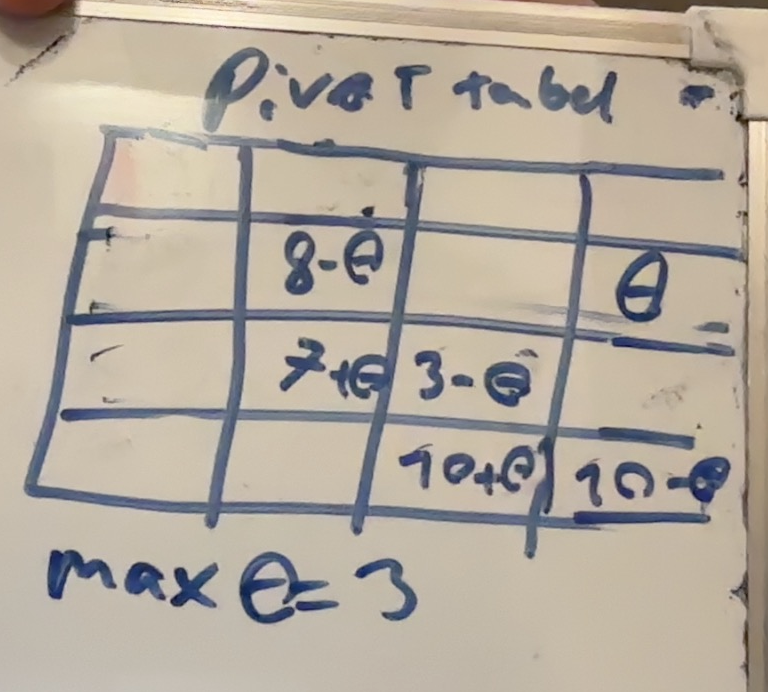 Pivot tabel
8-θ θ
7+θ 3-θ
10+θ 10-θ
max θ=3